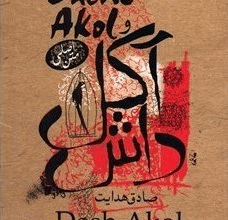 Akol
و
آکل
داش
متن اصلی
صادق هدایت
Dash Akol